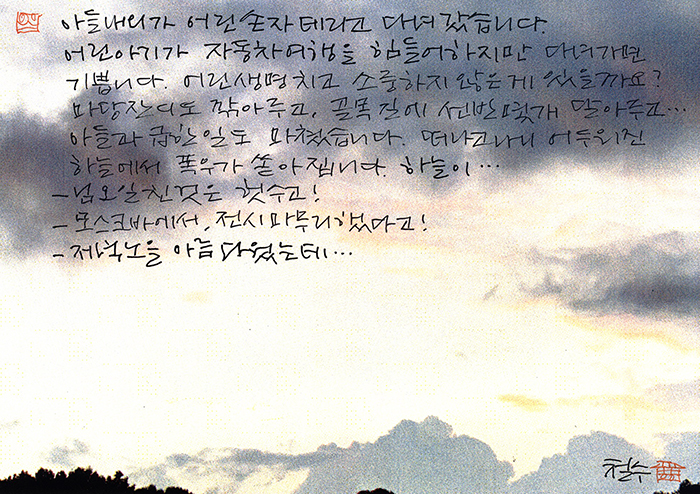 아들내외가 어린 손자 데리고 다녀 갔습니다.
어린아기가 자동차여행을 힘들어하지만 다녀가면
기쁩니다. 어린생명치고 소중하지 않은게 있을까요?
마당잔디도 깎아주고, 골목길에 선반몇개 달아주고…
아들과 급한일도 마쳤습니다. 떠나고나니 어두워진
하늘에서 폭우가 쏟아집니다. 하늘이…
- 넘오일친것은 헛수고!
- 모스크바에서, 전시마무리했다고!
- 저녁노을 아름다웠는데…
철수